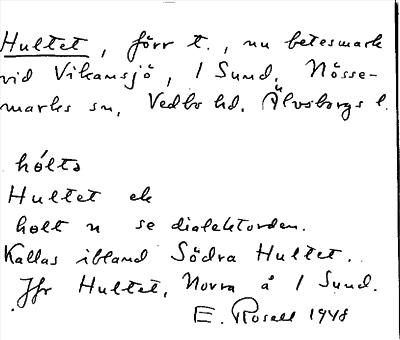 Hultet, förr t., nu betesmark
vid Vikansjö, 1 Sund, Nösse-
marks sn, Vedbo hd. Älvsborgs l.
hólta
Hultet ek
holt n se dialektorden.
Kallas ibland Södra Hultet.
Jfr Hultet, Norra å 1 Sund.
E. Rosell 1948